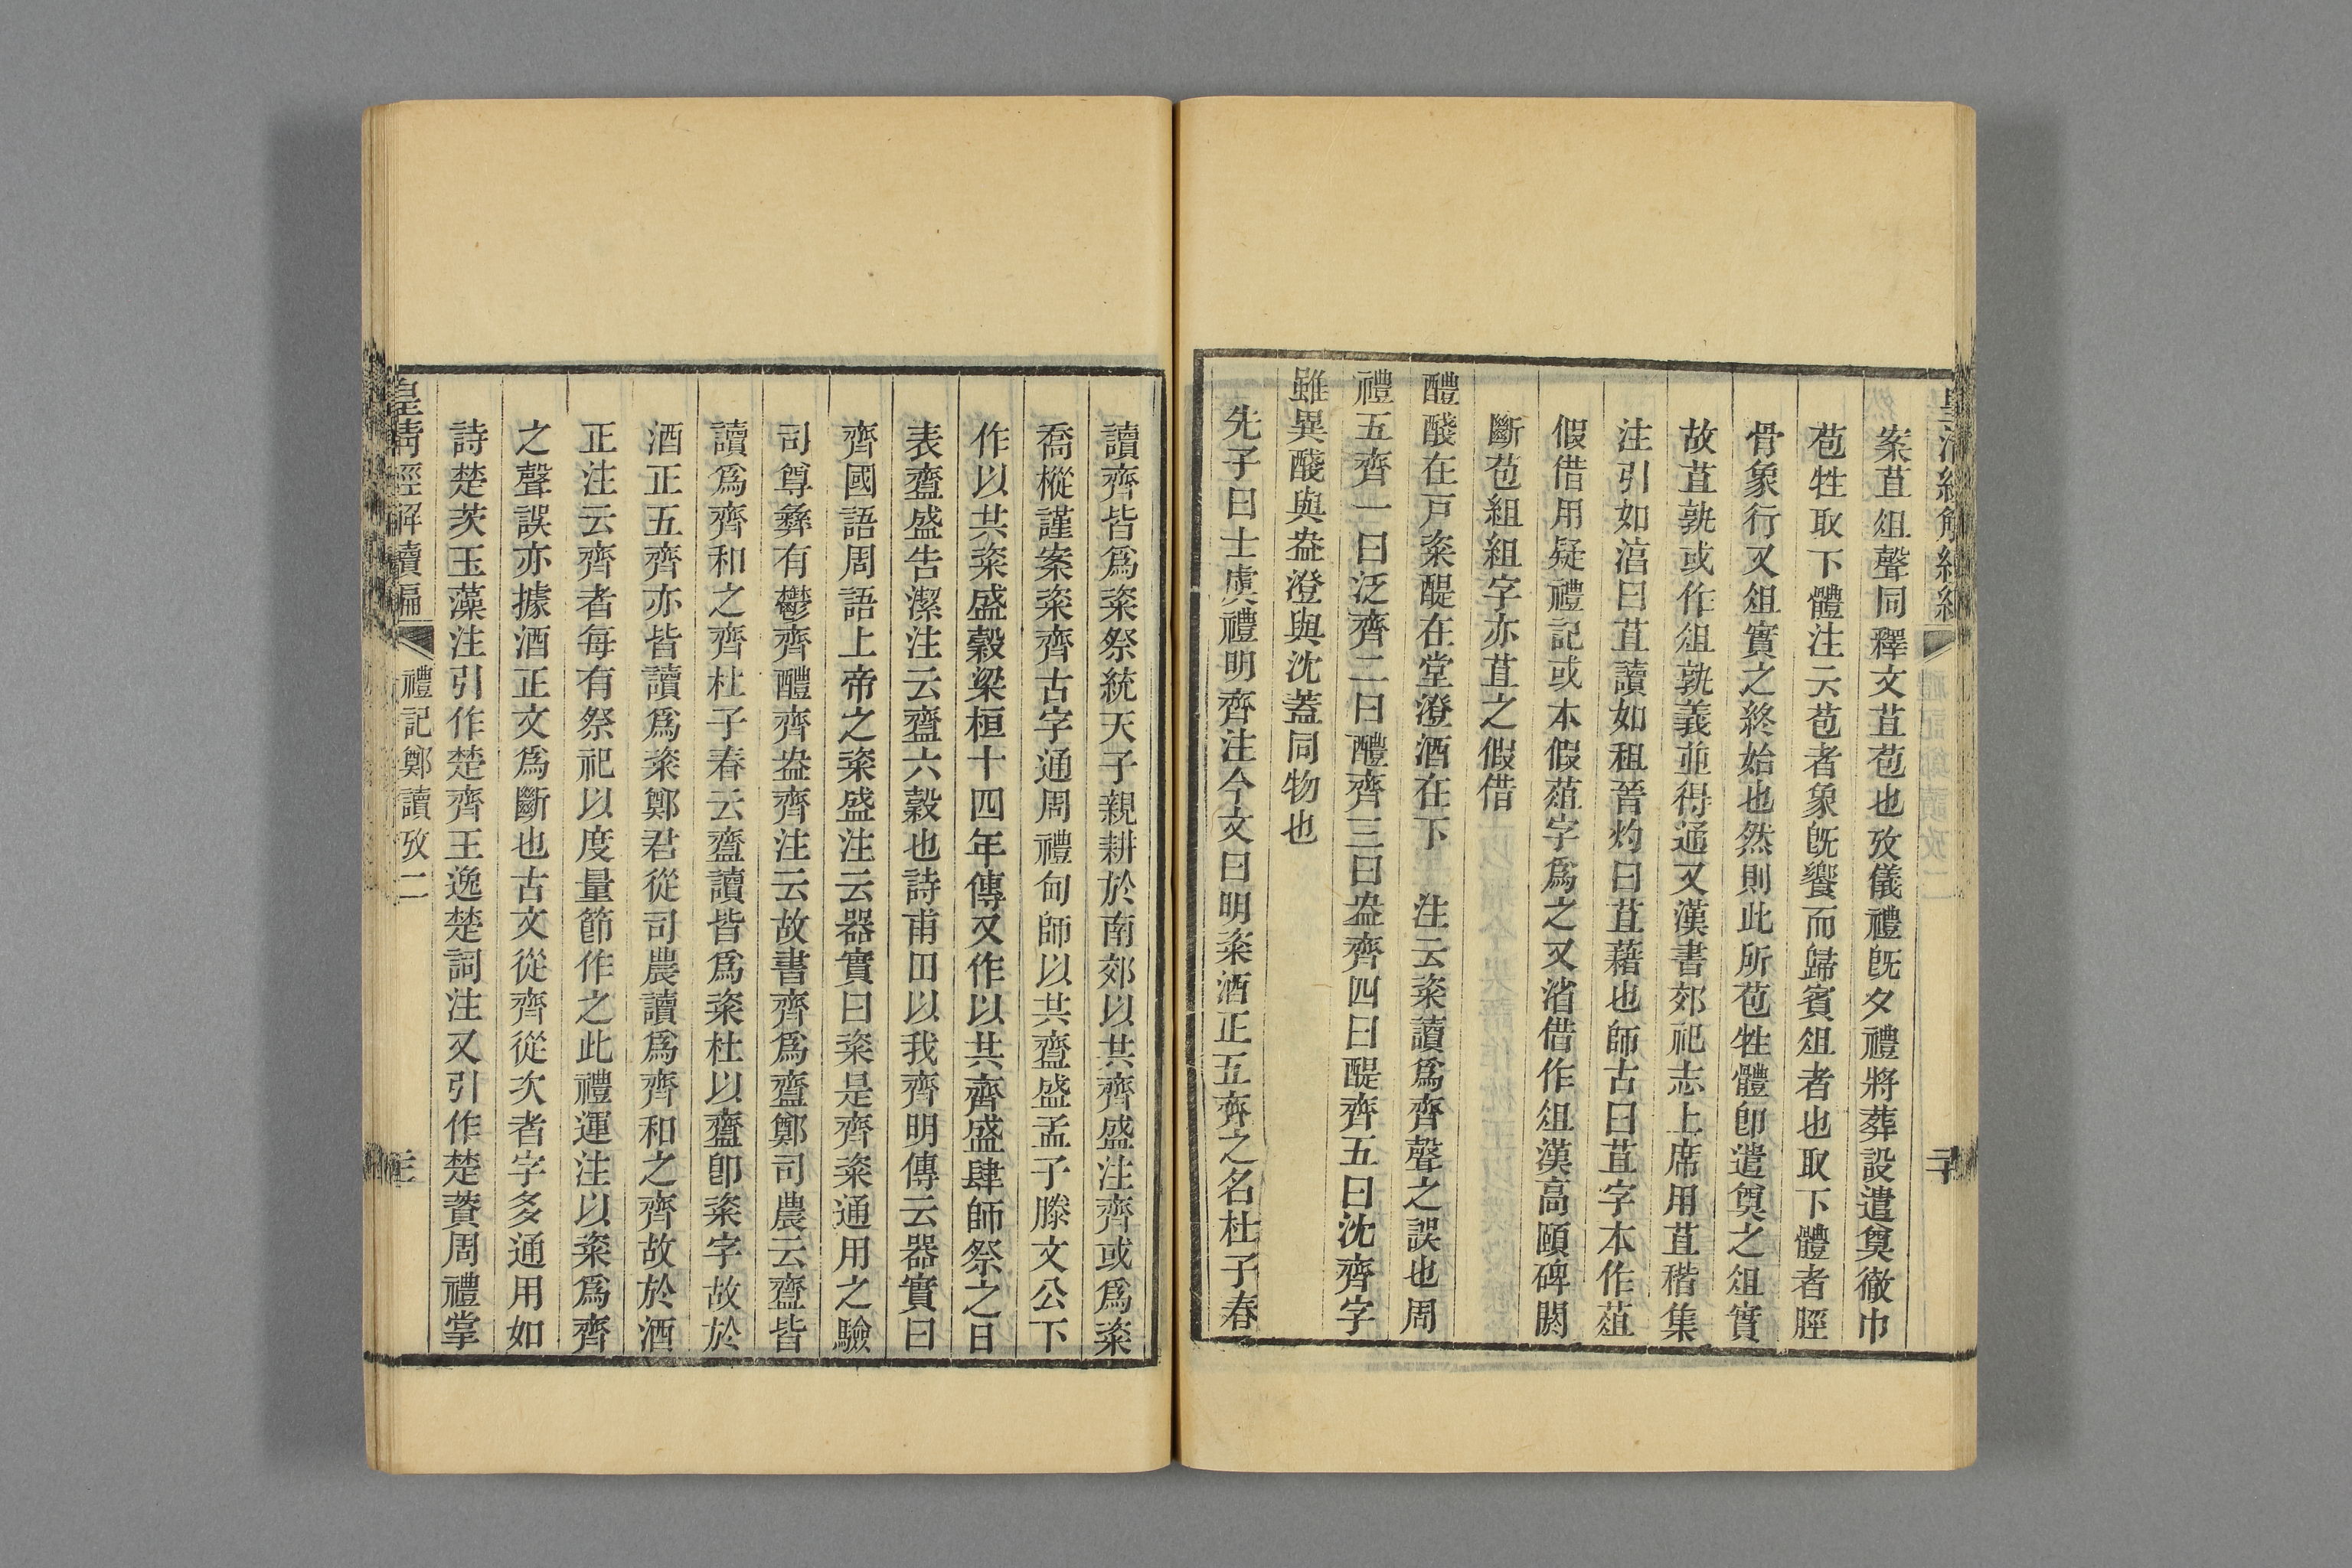 案苴俎聲同釋文苴苞也攷儀禮旣夕禮將葬設遣奠徹巾
苞牲取下體注云苞者象旣饗而歸賓俎者也取下體者脛
骨象行又俎實之終始也然則此所苞牲體卽遣奠之俎實
故苴孰或作俎孰義並得通又漢書郊祀志上席用苴稭集
注引如湻曰苴讀如租晉灼曰苴藉也師古曰苴字本作葅
假借用疑禮記或本假葅字爲之又渻借作俎漢高頤碑闕
斷苞組組字亦苴之假借
醴醆在戸粢醍在堂澄酒在下　注云粢讀爲齊聲之誤也周
禮五齊一曰泛齊二曰醴齊三曰盎齊四曰醍齊五曰沈齊字
雖異醆與盎澄與沈蓋同物也
先子曰士虞禮明齊注今文曰明粢酒正五齊之名杜子春
讀齊皆爲粢祭統天子親耕於南郊以共齊盛注齊或爲粢
喬樅謹案粢齊古字通周禮甸師以共齍盛孟子滕文公下
作以共粢盛穀梁桓十四年傳又作以共齊盛肆師祭之日
表齍盛告潔注云齍六穀也詩甫田以我齊明傳云器實曰
齊國語周語上帝之粢盛注云器實曰粢是齊粢通用之驗
司尊彝有鬱齊醴齊盎齊注云故書齊爲齍鄭司農云齍皆
讀爲齊和之齊杜子春云齍讀皆爲粢杜以齍卽粢字故於
酒正五齊亦皆讀爲粢鄭君從司農讀爲齊和之齊故於酒
正注云齊者每有祭祀以度量節作之此禮運注以粢爲齊
之聲誤亦據酒正文爲斷也古文從齊從次者字多通用如
詩楚茨玉藻注引作楚齊王逸楚詞注又引作楚薋周禮掌
皇清經解續編
禮記鄭讀攷二